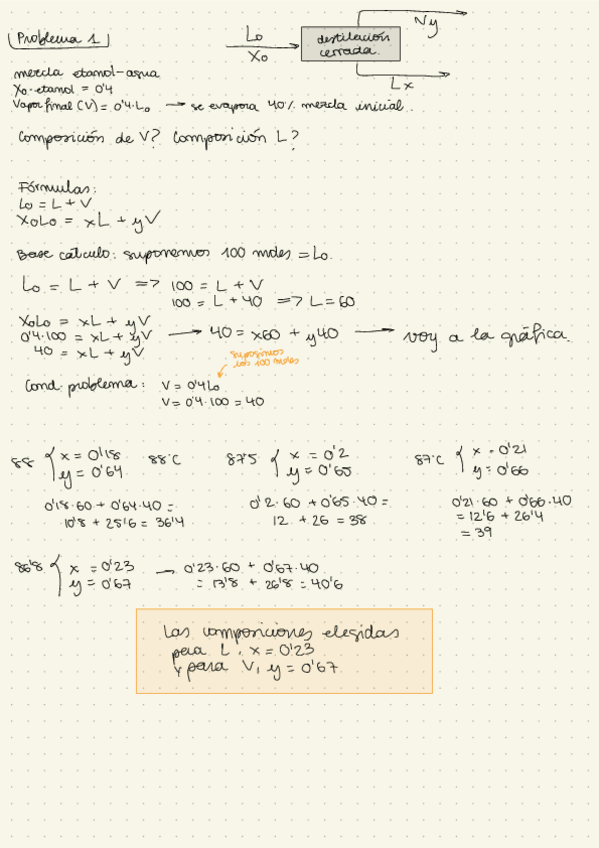 Problema 1
Lo
Xo
destilación
cerrada.
Vy
Lx
mezcla etanol-agua
Xo.etanol = 0'4
Vapor final (V) = 0'4·Lo → se evapora 40% mezcla inicial.
Composición de V? Composición L?
Fórmulas:
Lo = L + V
XoLo = xL + yV
Base cálculo: suponemos 100 moles = Lo.
Lo = L + V => 100 = L + V
100 = L + 40 => L = 60
XoLo = xL + yV
0'4·100 = xL + yV → 40 = x60 + y40 → voy a la gráfica.
40 = xL + yV
suposimos
los 100 moles
Cond. problema: V = 0'4Lo
V = 0'4·100 = 40
88 { x = 0'18
y = 0'64
88ºC
87'5 { x = 0'2
y = 0'65
87ºC { x = 0'21
y = 0'66
0'18·60 + 0'64·40 =
10'8 + 25'6 = 36'4
0'2·60 + 0'65·40 =
12 + 26 = 38
0'21·60 + 0'66·40
= 12'6 + 26'4
= 39
86'8 { x = 0'23
y = 0'67
→ 0'23·60 + 0'67·40
= 13'8 + 26'8 = 40'6
Las composiciones elegidas
para L, x = 0'23
y para V, y = 0'67